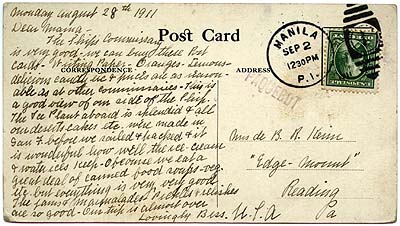 Monday August 28th 1911
Dear Mama -
The Ship's Commissary
is very good - we can buy these Post
Cards - Writing Paper - Oranges - Lemons -
delicious candy etc & prices are as reason-
able as at other commissaries - This is
a good view of our side of the Ship.
The Ice Plant aboard is splendid & all
our desserts cakes etc. were made in
San F. before we sailed & packed & it
is wonderful how well the ice-cream
& water ices keep - Of course we eat a
great deal of canned food soups - veg.
etc. but everything is very, very good
The jams & Marmalades Pickles & relishes
are so good - Our trip is almost over
Lovingly Bess.
Post Card
CORRESPONDENCE
ADDRESS
MANILA
SEP 2
1230PM
P.I.
Mrs de B. R. Keim
"Edge-Mount"
Reading
Pa
U.S.A